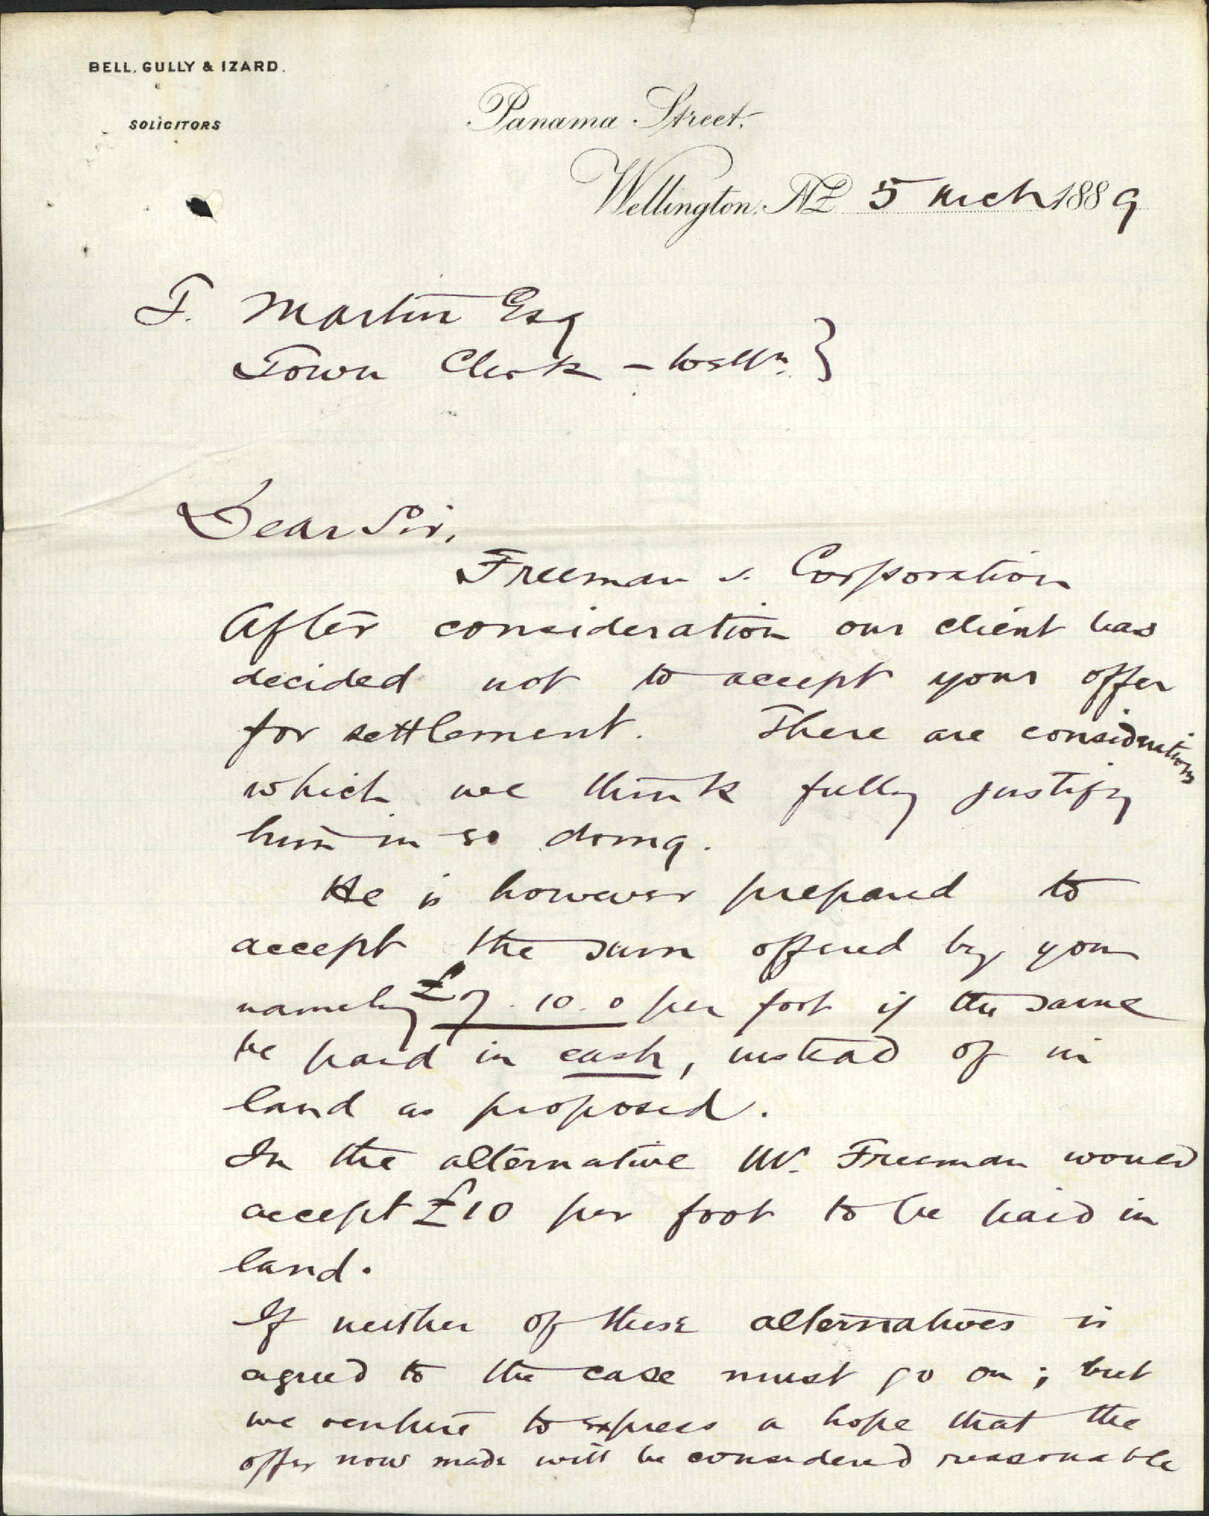 BELL, GULLY & IZARD.
SOLICITORS
Panama Street.
Wellington, NZ 5 Mch 1889
F. Martin Esq
Town Clerk – Wellⁿ. }
Dear Sir,
Freeman v. Corporation
After consideration our client has
decided not to accept your offer
for settlement. There are considerations
which we think fully justify
him in so doing.
He is however prepared to
accept the sum offered by you
namely £7. 10. 0 per foot if the same
be paid in cash, instead of in
land as proposed.
In the alternative Mr. Freeman would
accept £10 per foot to be paid in
land.
If neither of these alternatives is
agreed to the case must go on; but
we venture to express a hope that the
offer now made will be considered reasonable